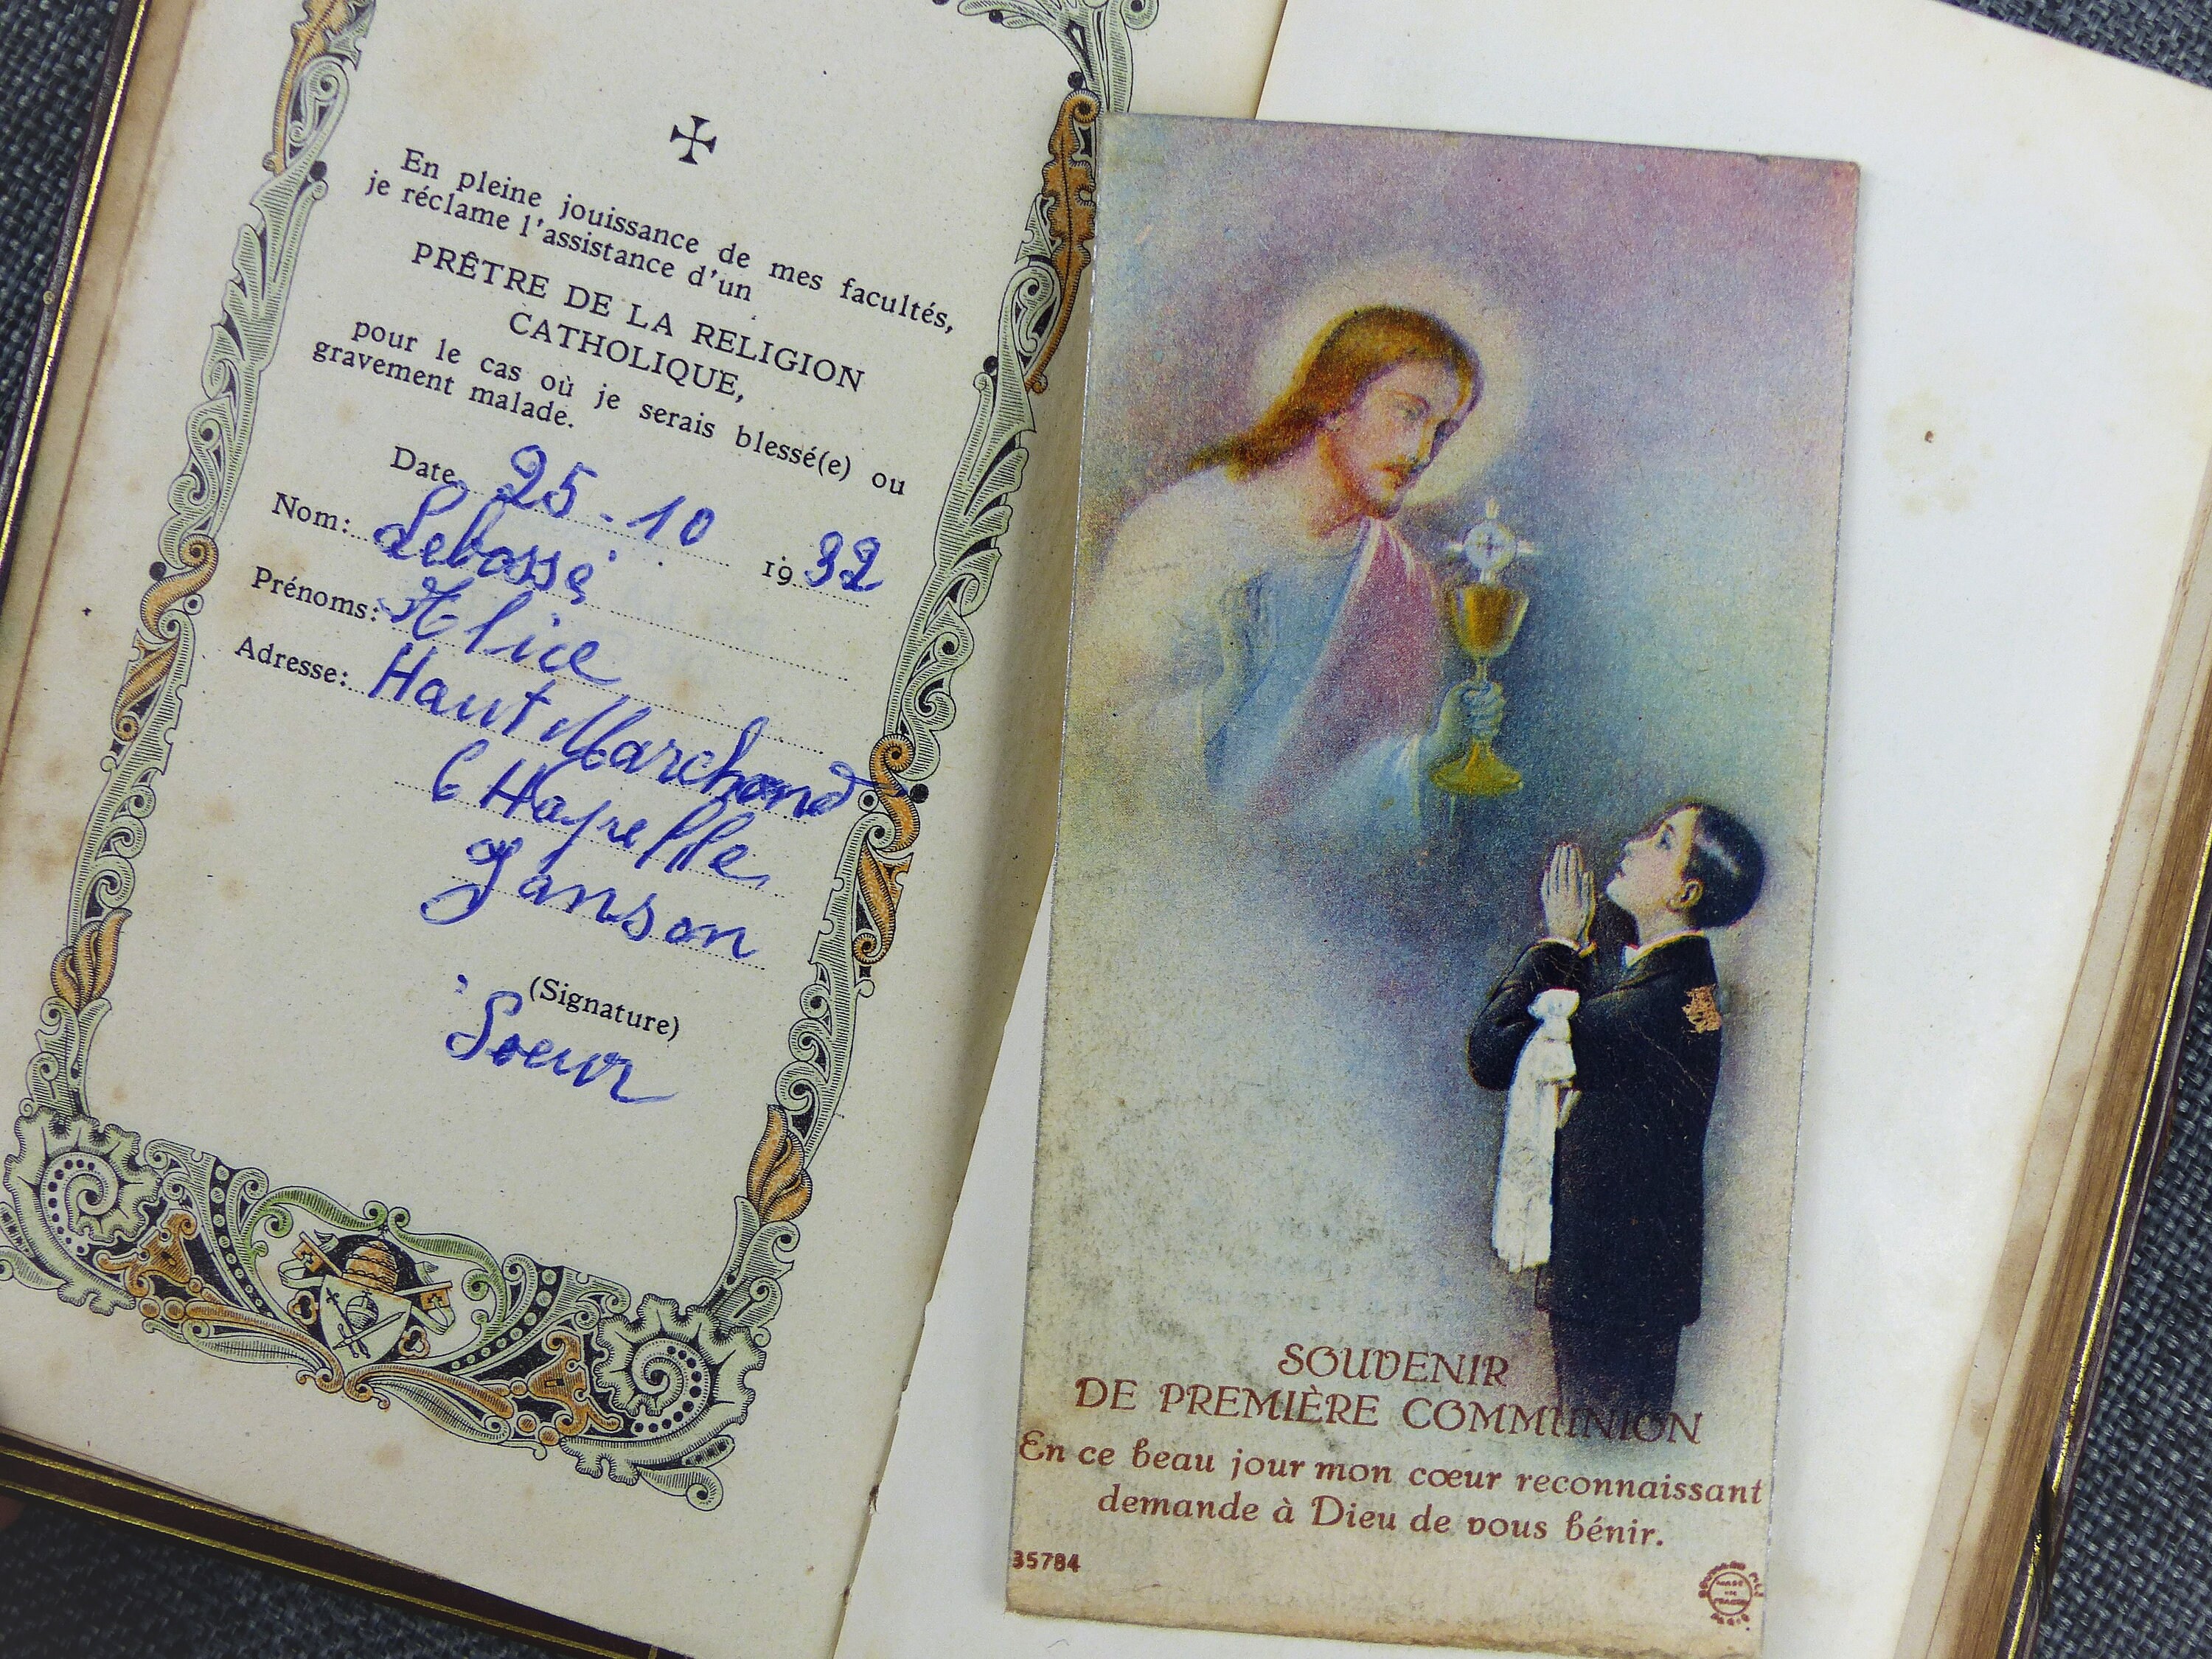 En pleine jouissance de mes facultés,
je réclame l'assistance d'un
PRÊTRE DE LA RELIGION
CATHOLIQUE,
pour le cas où je serais blessé(e) ou
gravement malade.
Date 25-10 1932
Nom: Lebossé
Prénoms: Alice
Adresse: Haut Marchand
Chapelle
Janson
(Signature)
Soeur
SOUVENIR
DE PREMIÈRE COMMUNION
En ce beau jour mon cœur reconnaissant
demande à Dieu de vous bénir.
35784
MADE
IN
FRANCE
PARIS